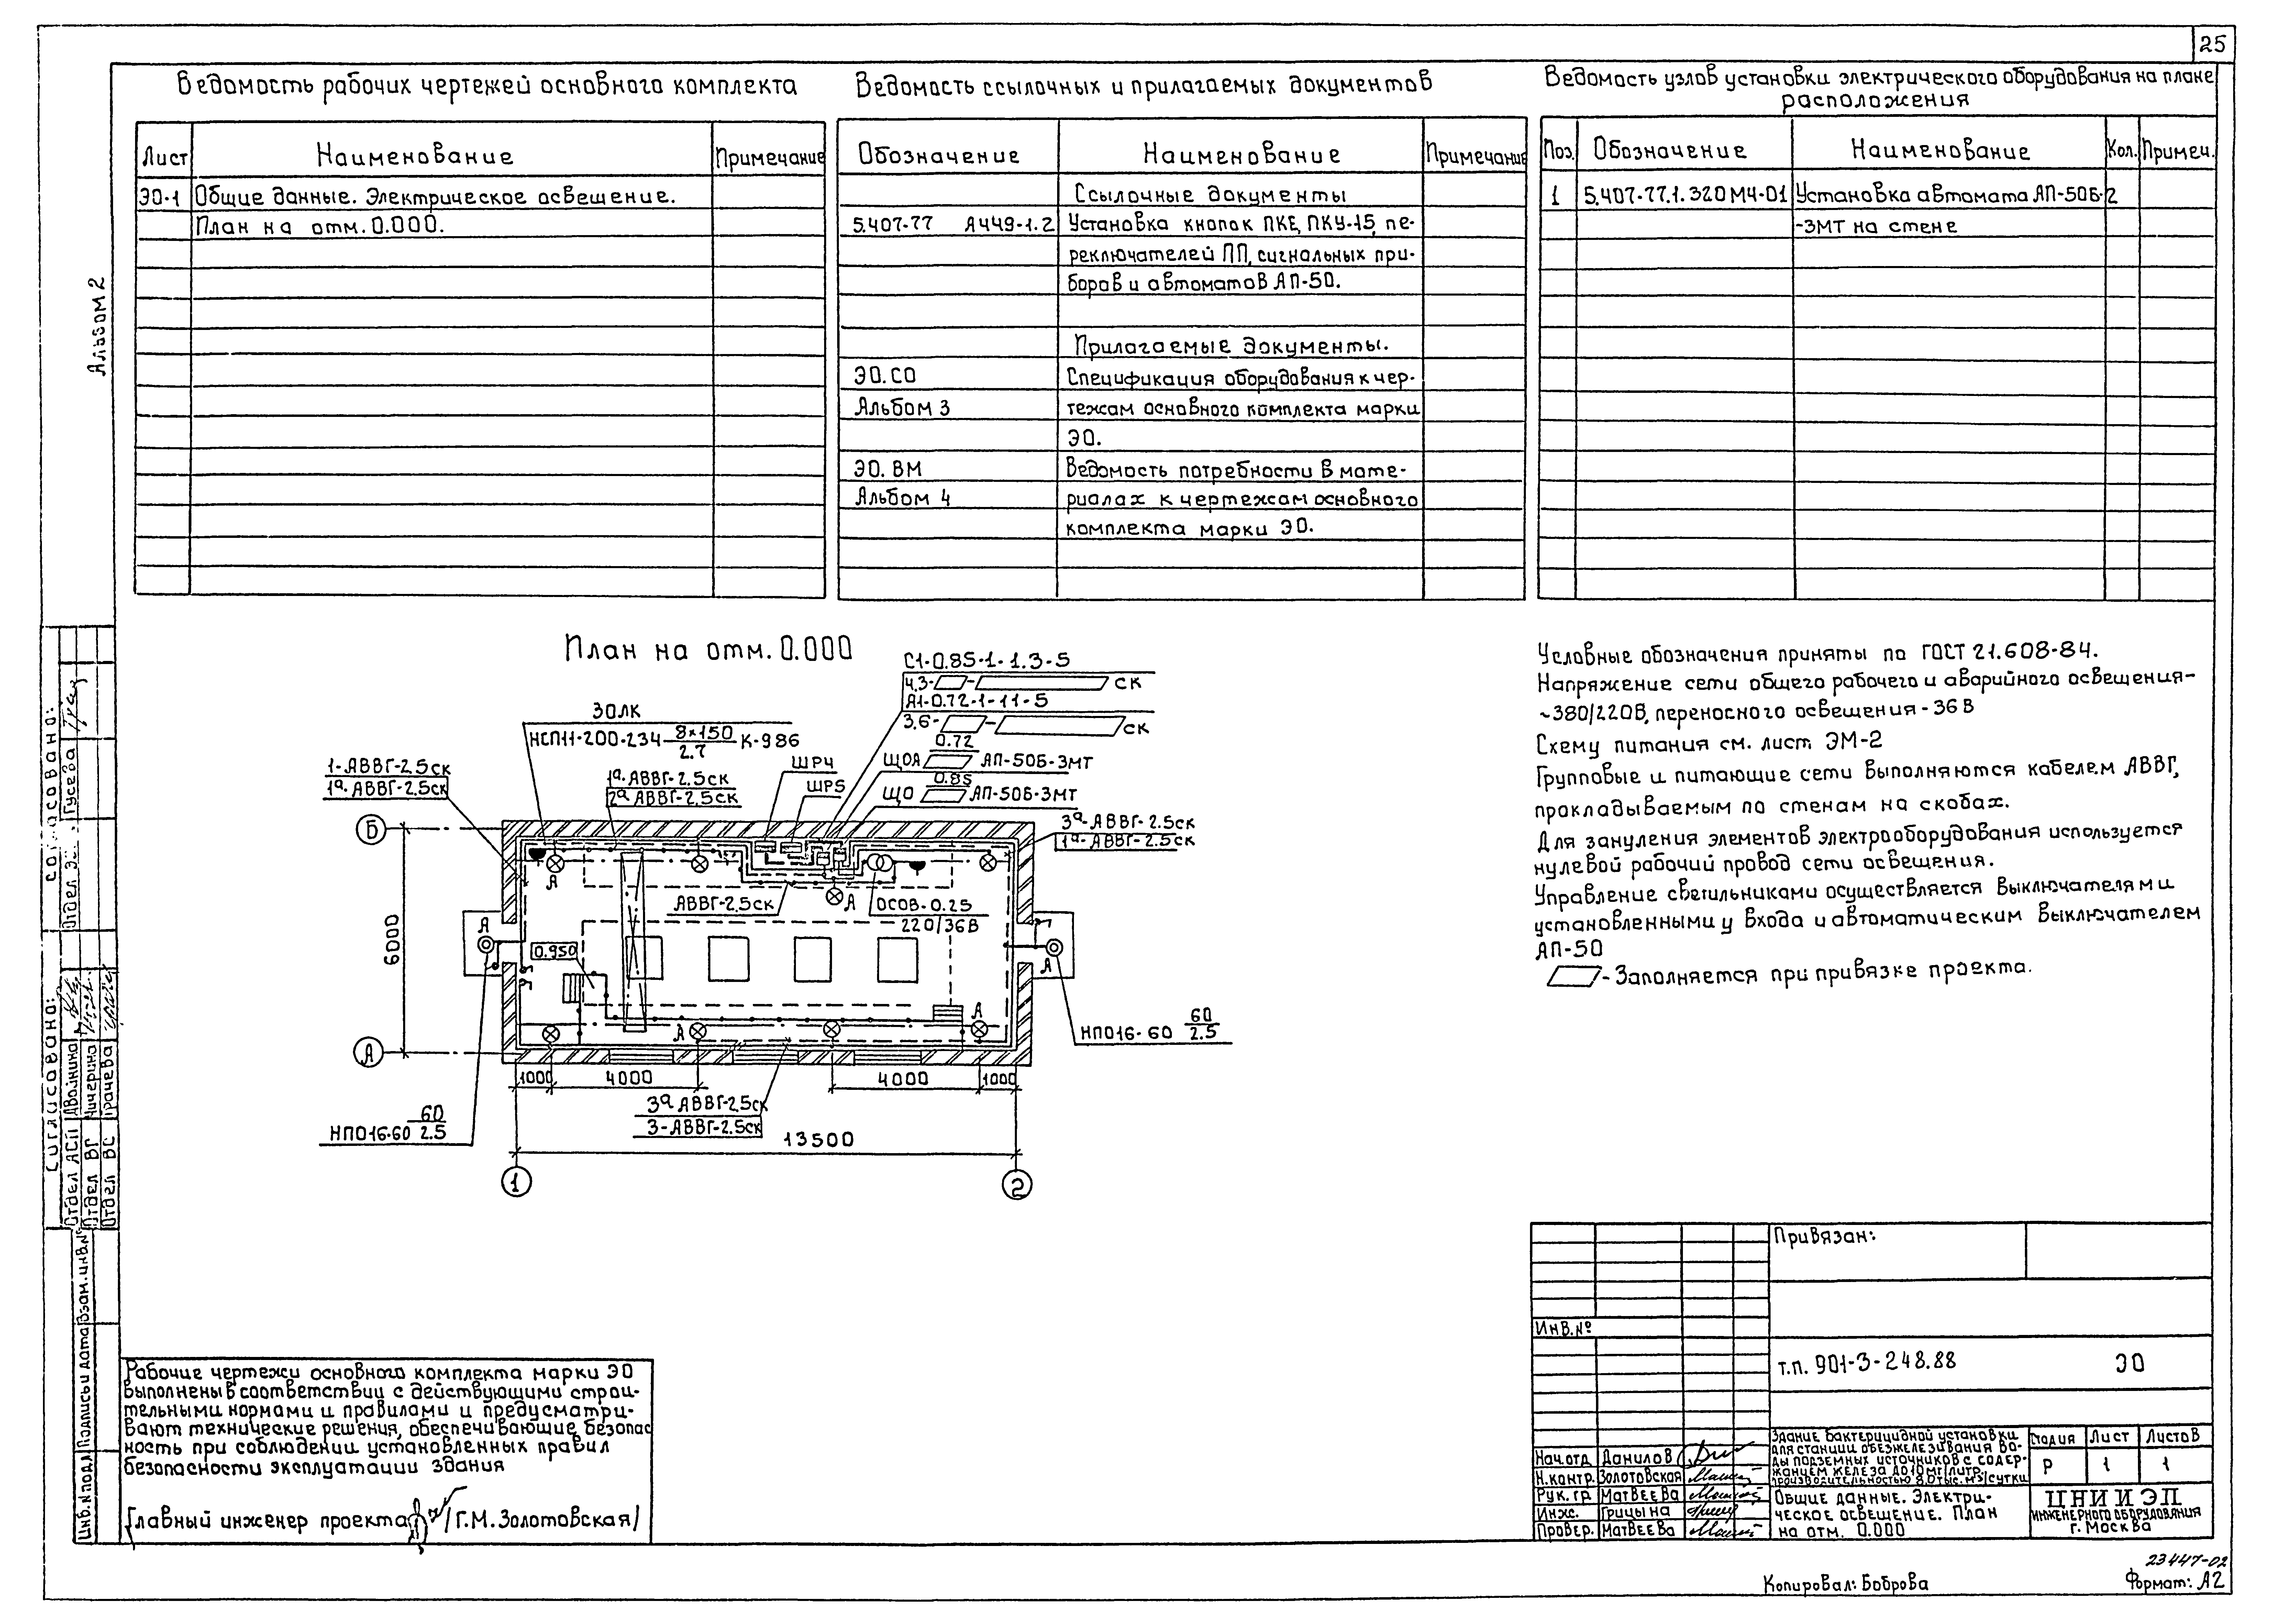 25
Ведомость рабочих чертежей основного комплекта
Лист Наименование Примечание
ЭО-1 Общие данные. Электрическое освещение.
План на отм. 0.000.
Ведомость ссылочных и прилагаемых документов
Обозначение Наименование Примечание
Ссылочные документы
5.407-77 А449-1.2 Установка кнопок ПКЕ, ПКУ-15, пе-
реключателей ПП, сигнальных при-
боров и автоматов АП-50.
Прилагаемые документы.
ЭО. СО Спецификация оборудования к чер-
Альбом 3 тежам основного комплекта марки
ЭО.
ЭО. ВМ Ведомость потребности в мате-
Альбом 4 риалах к чертежам основного
комплекта марки ЭО.
Ведомость узлов установки электрического оборудования на плане
расположения
Поз. Обозначение Наименование Кол. Примеч.
1 5.407-77.1.320МЧ-01 Установка автомата АП-50Б- 2
-3МТ на стене
Альбом 2
План на отм. 0.000
С1-0.85-1-1.3-5
4,3- - ск
А1-0.72-1-11-5
3,6- - ск
30ЛК
НСП11-200-234 8×150/2.7 К-986
0.72
ЩОА АП-50Б-3МТ
0.85
ЩО АП-50Б-3МТ
ШР4
ШР5
1-АВВГ-2,5ск
1ª-АВВГ-2.5ск
1ª-АВВГ-2.5ск
2ª АВВГ-2.5ск
3ª-АВВГ-2.5ск
1ª-АВВГ-2.5ск
Б
А
А
А
АВВГ-2.5ск
ОСОВ-0.25
220/36В
6000
0.950
А
А
А
А
НПО16-60 60/2.5
НПО16-60 60/2.5
1000 4000 4000 1000
3ª АВВГ-2.5ск
3-АВВГ-2.5ск
13500
1 2
Условные обозначения приняты по ГОСТ 21.608-84.
Напряжение сети общего рабочего и аварийного освещения-
~380/220В, переносного освещения-36В
Схему питания см. лист ЭМ-2
Групповые и питающие сети выполняются кабелем АВВГ,
прокладываемым по стенам на скобах.
Для зануления элементов электрооборудования используется
нулевой рабочий провод сети освещения.
Управление светильниками осуществляется выключателями
установленными у входа и автоматическим выключателем
АП-50
-Заполняется при привязке проекта.
Согласовано:
Отдел ЭС Гусева
Согласовано:
Отдел АСП Двойнина
Отдел ВГ Ничерина
Отдел ВС Грачева
Инв.№подл Подпись и дата Взам.инв.№
Рабочие чертежи основного комплекта марки ЭО
выполнены в соответствии с действующими строи-
тельными нормами и правилами и предусматри-
вают технические решения, обеспечивающие безопас
ность при соблюдении установленных правил
безопасности эксплуатации здания
Главный инженер проекта /Г.М.Золотовская/
Привязан:
Инв.№
т.п. 901-3-248.88 ЭО
Нач.отд Данилов
Н.контр. Золотовская
Рук.гр Матвеева
Инж. Грицына
Провер. Матвеева
Здание бактерицидной установки
для станции обезжелезивания во-
ды подземных источников с содер-
жанием железа до 10 мг/литр,
производительностью 8.0 тыс.м³/сутки
Стадия Лист Листов
Р 1 1
Общие данные. Электри-
ческое освещение. План
на отм. 0.000
ЦНИИЭП
инженерного оборудования
г. Москва
23447-02
Копировал: Боброва
Формат: А2